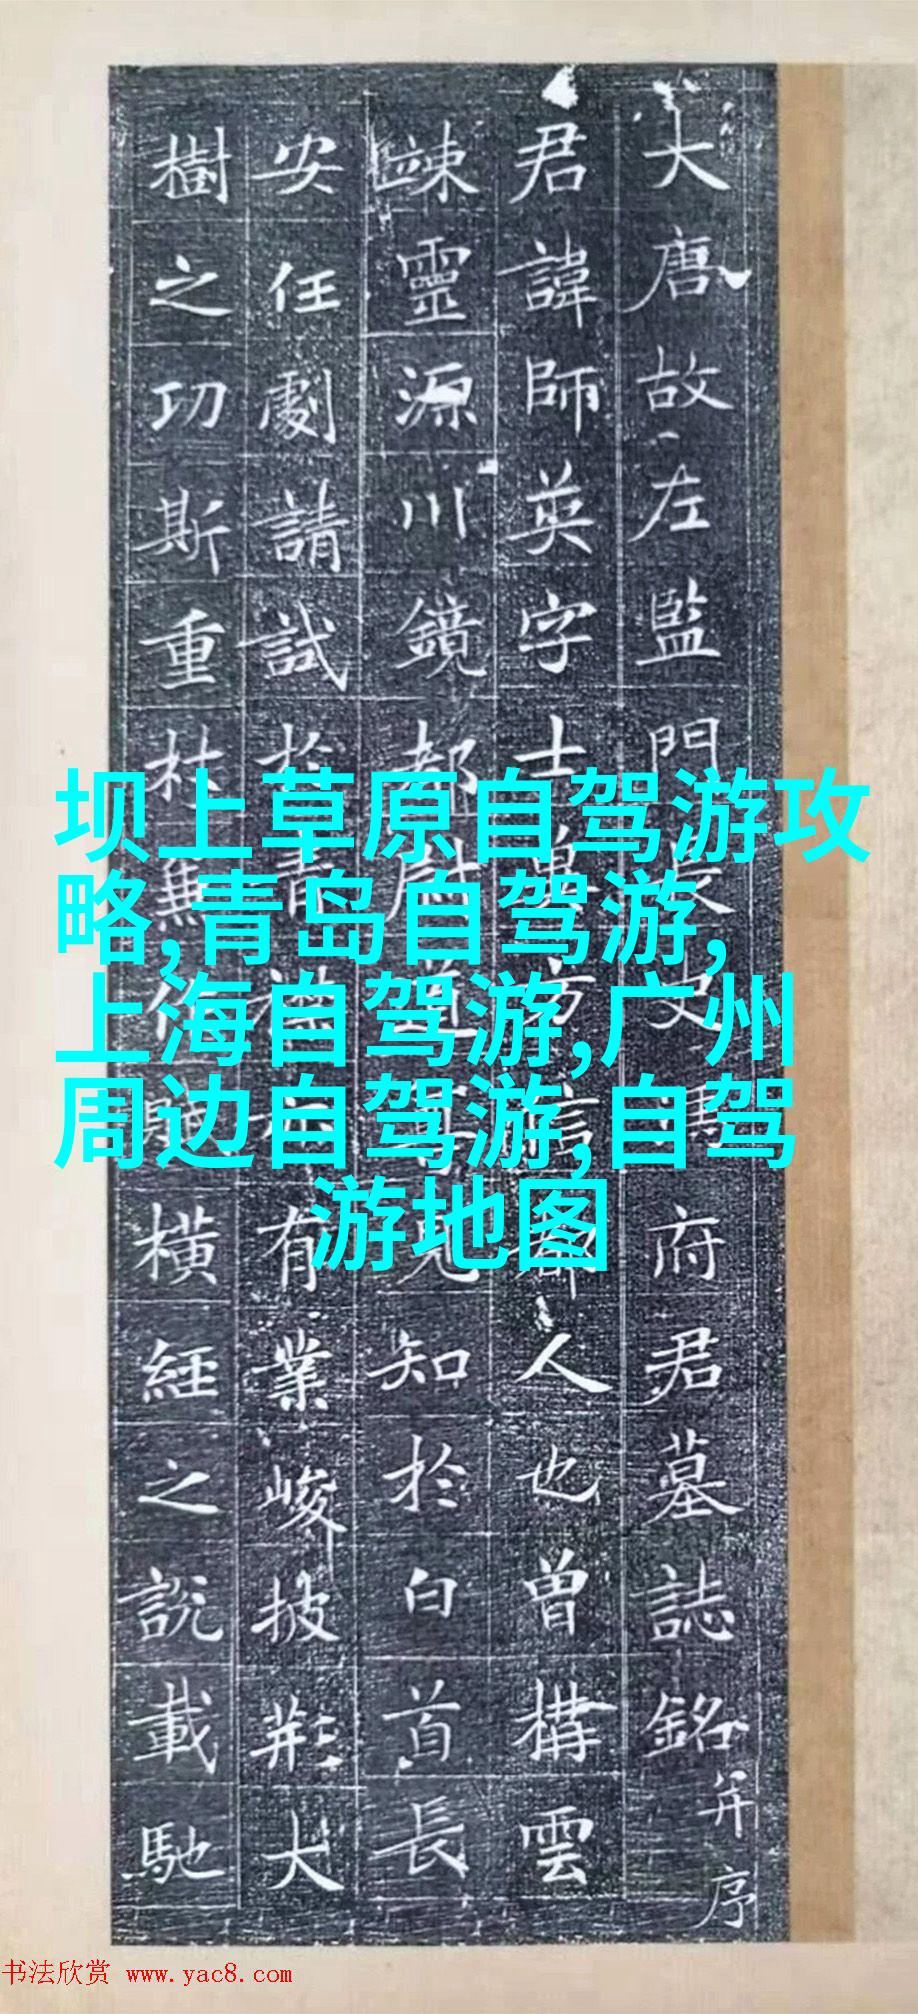 大唐故左監門長史馮府君墓誌銘并序
君諱師英字士方信都人也曾構雲
竦靈源川鏡都尉道見知於白首長
安任劇請試於有業峻披荊大
樹之功斯重杜作橫經之說載馳
坝上草原自驾游攻
略,青岛自驾游,
上海自驾游,广州
周边自驾游,自驾
游地图
书法欣赏 www.yac8.com